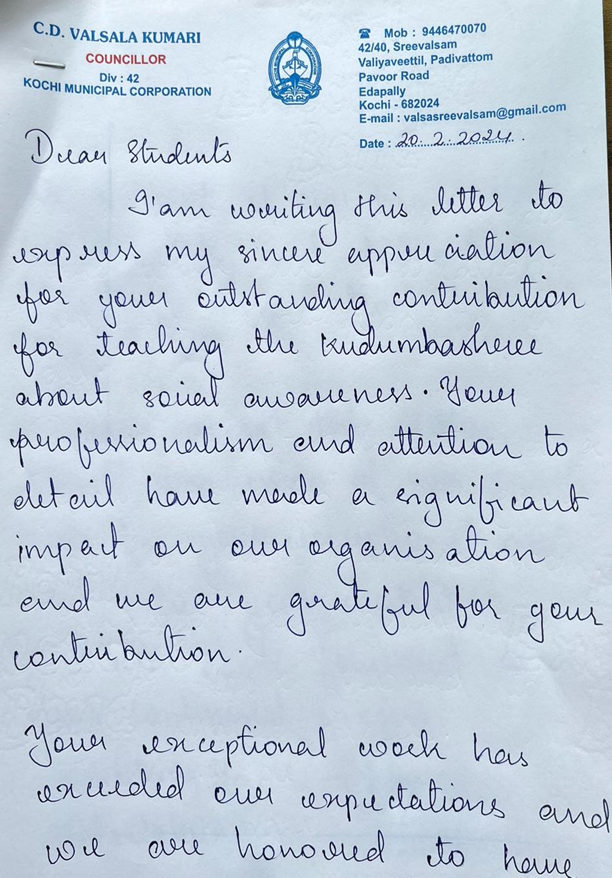 C.D. VALSALA KUMARI
COUNCILLOR
Div : 42
KOCHI MUNICIPAL CORPORATION
Mob : 9446470070
42/40, Sreevalsam
Valiyaveettil, Padivattom
Pavoor Road
Edapally
Kochi - 682024
E-mail : valsasreevalsam@gmail.com
Date : 20.2.2024.
Dear Students
I'am writing this letter to
express my sincere appreciation
for your outstanding contribution
for teaching the kudumbasheree
about social awareness. Your
professionalism and attention to
detail have made a significant
impact on our organisation
and we are grateful for your
contribution.
Your exceptional work has
exceeded our expectations and
we are honored to have